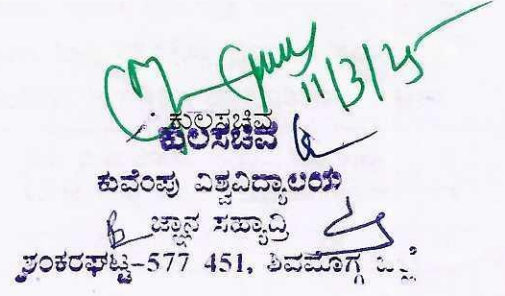 11/3/25
ಕುಲಸಚಿವ
ಕುಲಸಚಿವ
ಕುವೆಂಪು ವಿಶ್ವವಿದ್ಯಾಲಯ
ಜ್ಞಾನ ಸಹ್ಯಾದ್ರಿ
ಶಂಕರಘಟ್ಟ-577 451, ಶಿವಮೊಗ್ಗ